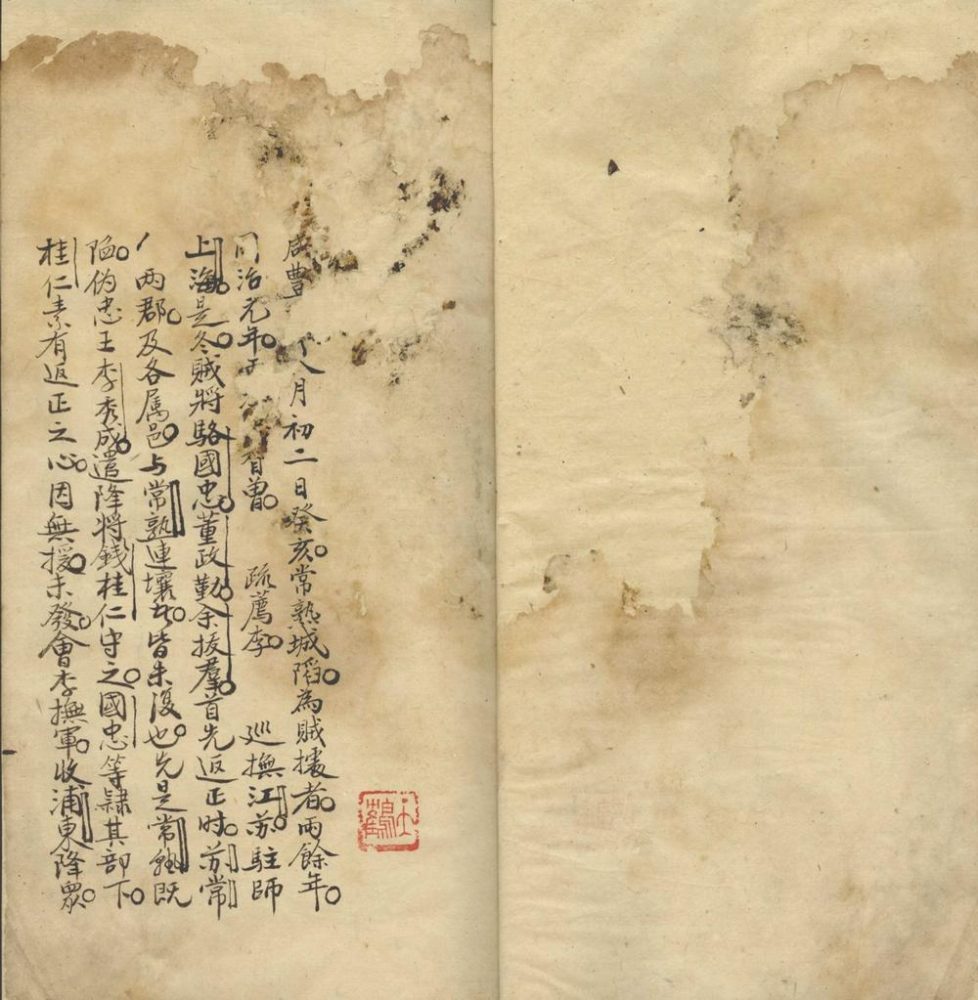 咸豐 八月初二日癸亥常熟城陷為賊擾者兩餘年
同治元年 曾 疏薦李 巡撫江苏駐師
上海是冬賊将駱國忠董政勤余拔羣首先返正时苏常
兩郡及各属邑与常熟連壤者皆未復也先是常熟既
陷伪忠王李秀成遣降将錢桂仁守之國忠等隷其部下
桂仁素有返正之心因無援未發會李撫軍收浦東降眾